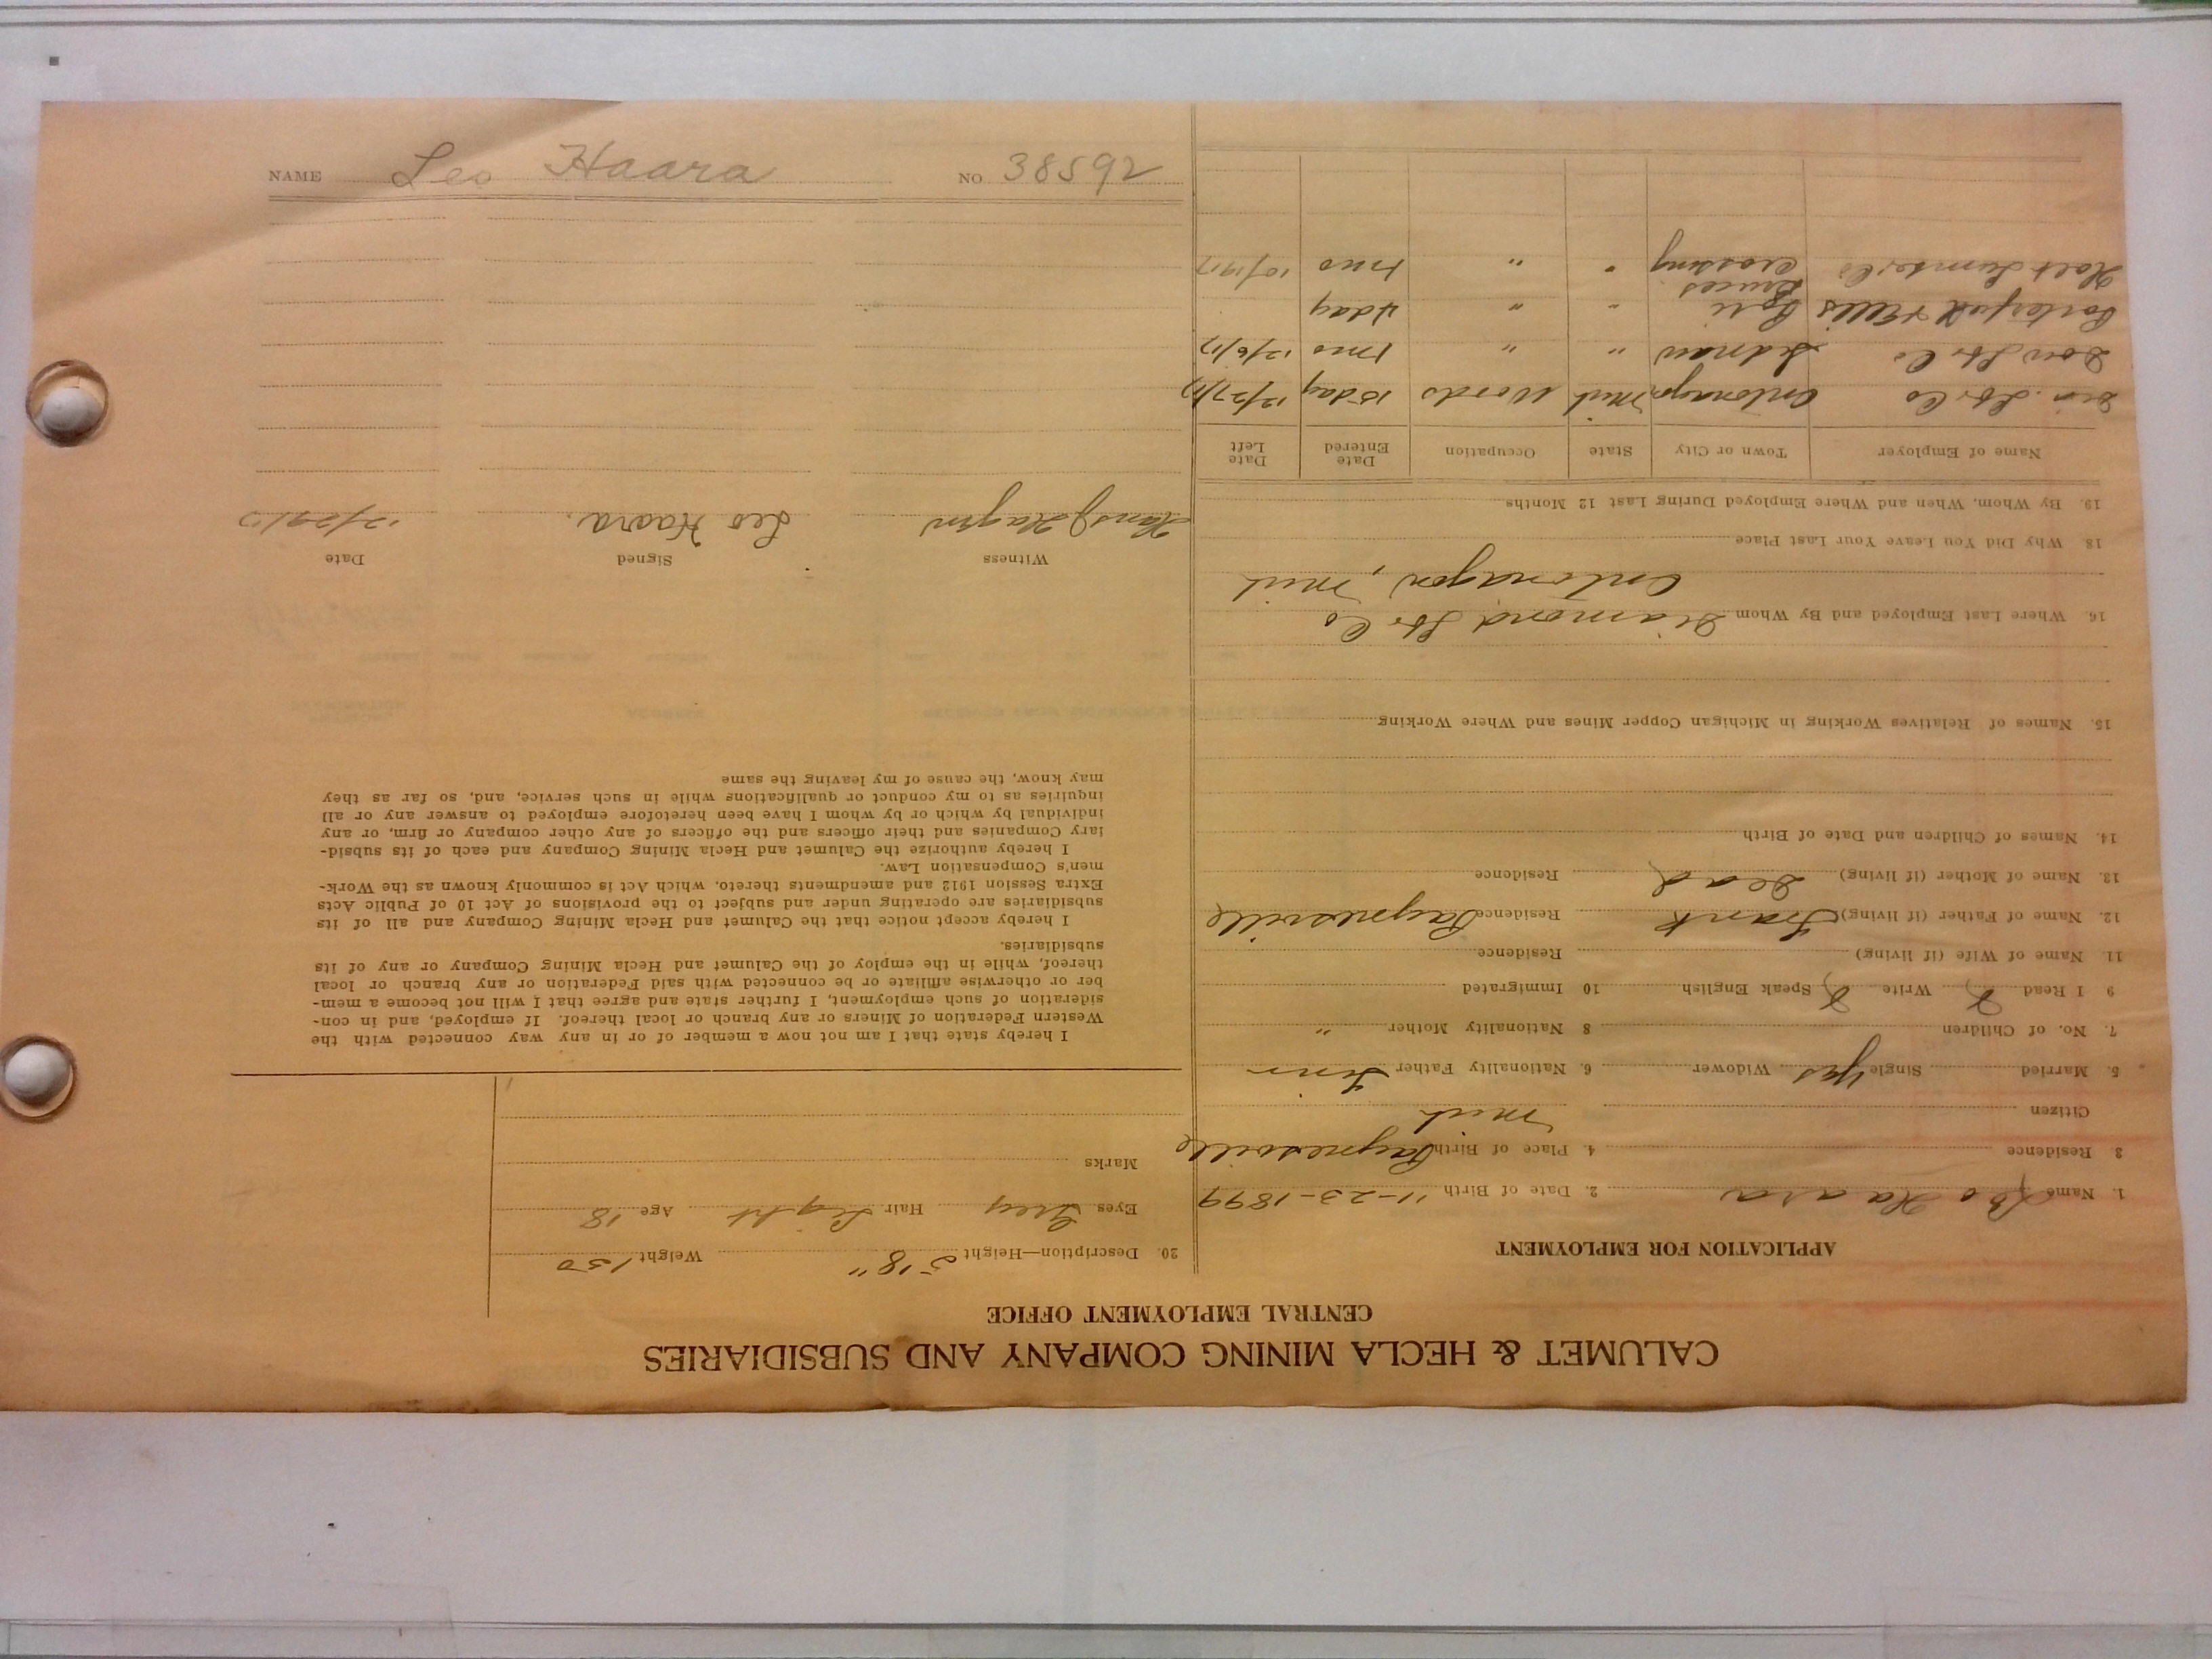 CALUMET & HECLA MINING COMPANY AND SUBSIDIARIES
CENTRAL EMPLOYMENT OFFICE
APPLICATION FOR EMPLOYMENT
1. Name Leo Haara 2. Date of Birth 11-23-1899
3 Residence 4. Place of Birth Paynesville
Citizen Mich
5. Married Single Yes Widower 6. Nationality Father Finn
7. No. of Children 8 Nationality Mother "
9 I Read Write Speak English 10 Immigrated
11. Name of Wife (if living) Residence
12. Name of Father (if living) Frank Residence Paynesville
13. Name of Mother (if living) Dead Residence
14. Names of Children and Date of Birth
15. Names of Relatives Working in Michigan Copper Mines and Where Working
16. Where Last Employed and By Whom Diamond Lbr Co
Ontonagon, Mich
18 Why Did You Leave Your Last Place
19. By Whom, When and Where Employed During Last 12 Months
Name of Employer Town or City State Occupation Date Entered Date Left
Dia. Lbr Co Ontonagon Mich Woods 15 day 12/27/17
Dow Lbr Co Sidnaw " " 1 mo 12/6/17
& Ellis " " 4 day
Holt Lumber Co Bruces Crossing " " 1 mo 10/19/17
20. Description—Height 5'8" Weight 150
Eyes Grey Hair Light Age 18
Marks
I hereby state that I am not now a member of or in any way connected with the
Western Federation of Miners or any branch or local thereof. If employed, and in con-
sideration of such employment, I further state and agree that I will not become a mem-
ber or otherwise affiliate or be connected with said Federation or any branch or local
thereof, while in the employ of the Calumet and Hecla Mining Company or any of its
subsidiaries.
I hereby accept notice that the Calumet and Hecla Mining Company and all of its
subsidiaries are operating under and subject to the provisions of Act 10 of Public Acts
Extra Session 1912 and amendments thereto, which Act is commonly known as the Work-
men's Compensation Law.
I hereby authorize the Calumet and Hecla Mining Company and each of its subsid-
iary Companies and their officers and the officers of any other company or firm, or any
individual by which or by whom I have been heretofore employed to answer any or all
inquiries as to my conduct or qualifications while in such service, and, so far as they
may know, the cause of my leaving the same
Witness Signed Date
Hans J Hagen Leo Haara. 12/29/17
NAME Leo Haara NO 38592